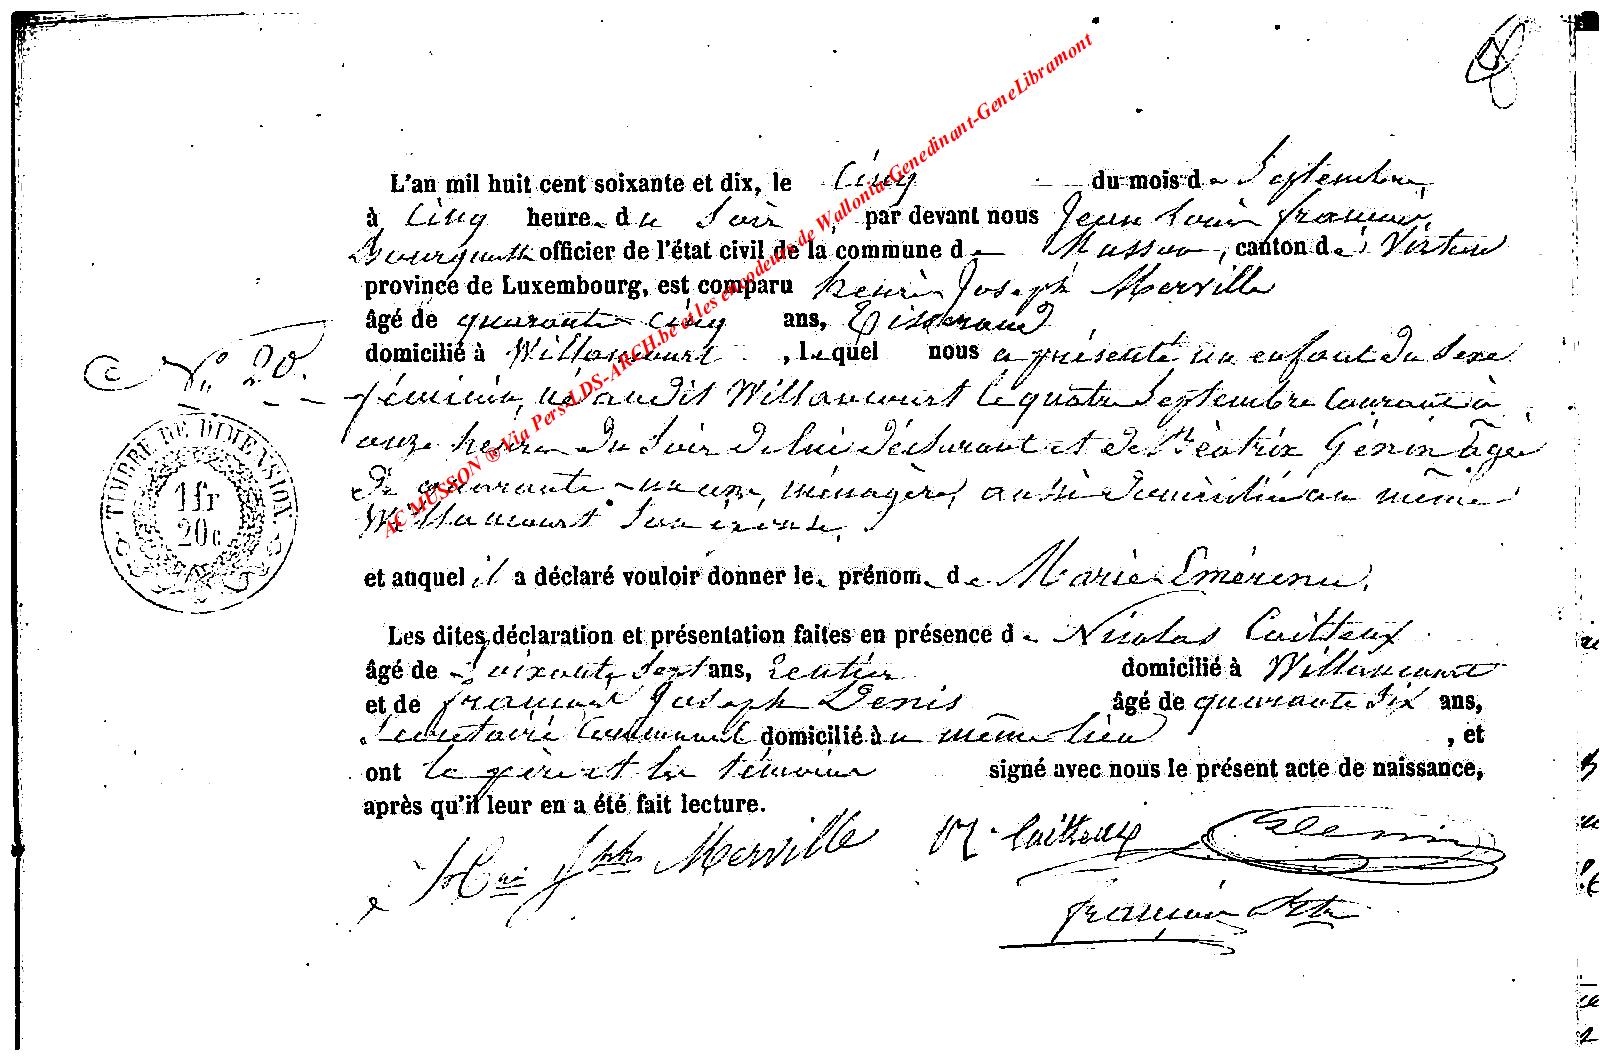 L'an mil huit cent soixante et dix, le Cinq du mois de Septembre,
à Cinq heures du Soir, par devant nous Jean Louis François
officier de l'état civil de la commune de Musson, canton de Virton
province de Luxembourg, est comparu henri Joseph Merville
âgé de quarante cinq ans, Tisserand
domicilié à Willancourt, lequel nous a présenté un enfant du Sexe
N° 20.
féminin, né audit Willancourt le quatre Septembre courant à
onze heures du Soir de lui déclarant et de Béatrix Génin âgée
de quarante-un ans, ménagère, aussi domiciliée au même
Willancourt Son épouse.
TIMBRE DE DIMENSION.
1 fr
20 c
et auquel il a déclaré vouloir donner les prénoms de Marie Emérence.
Les dites déclaration et présentation faites en présence de Nicolas Caitteux
âgé de Soixante Sept ans, rentier domicilié à Willancourt
et de françois Joseph Denis âgé de quarante Six ans,
Secrétaire Communal domicilié au même lieu, et
ont le père et les témoins signé avec nous le présent acte de naissance,
après qu'il leur en a été fait lecture.
Hri Jph Merville N. Caitteux Denis
françois
AC MUSSON ® Via Pers-LDS-ARCH.be et les encodeurs de Wallonia-Genedinant-GeneLibramont